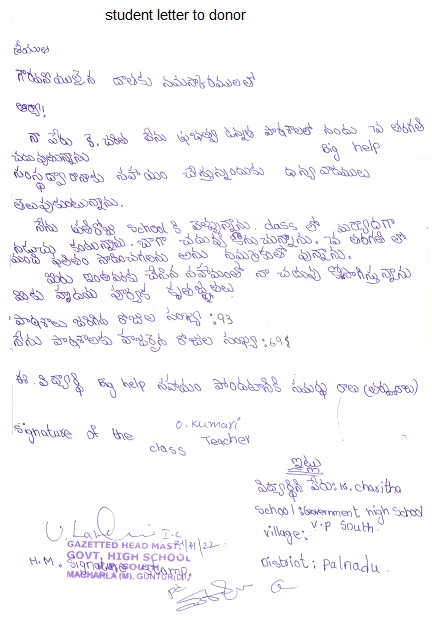 student letter to donor
శ్రీయుత
గౌరవనీయులైన దాతకు నమస్కారములతో
ఆర్యా!
నా పేరు కె. చరిత నేను ప్రభుత్వ ఉన్నత పాఠశాలలో నందు 7వ తరగతి
చదువుతున్నాను Big help
సంస్థ ద్వారా నాకు సహాయం చేస్తున్నందుకు ధన్యవాదములు
తెలుపుకుంటున్నాను.
నేను ప్రతిరోజు school కి వెళ్చున్నాను. class లో మర్యాదగా
నడుచు కుంటున్నాను. బాగా చదువు కొనుచున్నాను. 7వ తరగతి లో
మంచి ఫలితం సాధించగలను అను నమ్మకంతో వున్నాను.
మీరు ఇంతవరకు చేసిన సహాయంతో నా చదువు కొనసాగిస్తున్నాను
మీకు హృదయ పూర్వక కృతజ్ఞతలు
పాఠశాలు జరిగిన రోజుల సంఖ్య : 93
నేను పాఠశాలకు హాజరైన రోజుల సంఖ్య : 69
ఈ విద్యార్థి Big help సహాయం పొందుటానికి సమర్థు రాలు (అర్హురాలు)
O. Kumari
signature of the class Teacher
ఇట్లు
విద్యార్థిని పేరు: K. charitha
School : Government high School
village: V.P South.
District: palnadu.
GAZETTED HEAD MAST
GOVT, HIGH SCHOOL
H.M. Signature
MACHARLA (M). GUNTUR(Dt)